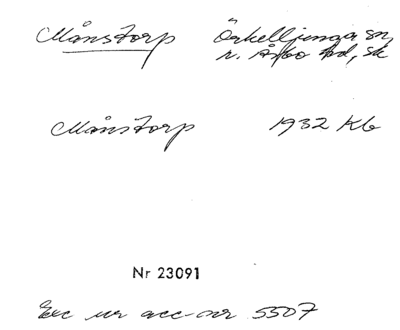 Månstorp Örkelljunga sn,
n. Åsbo hd, sk
Månstorp 1932 Kb
Nr 23091
Exc ur acc-nr 5507